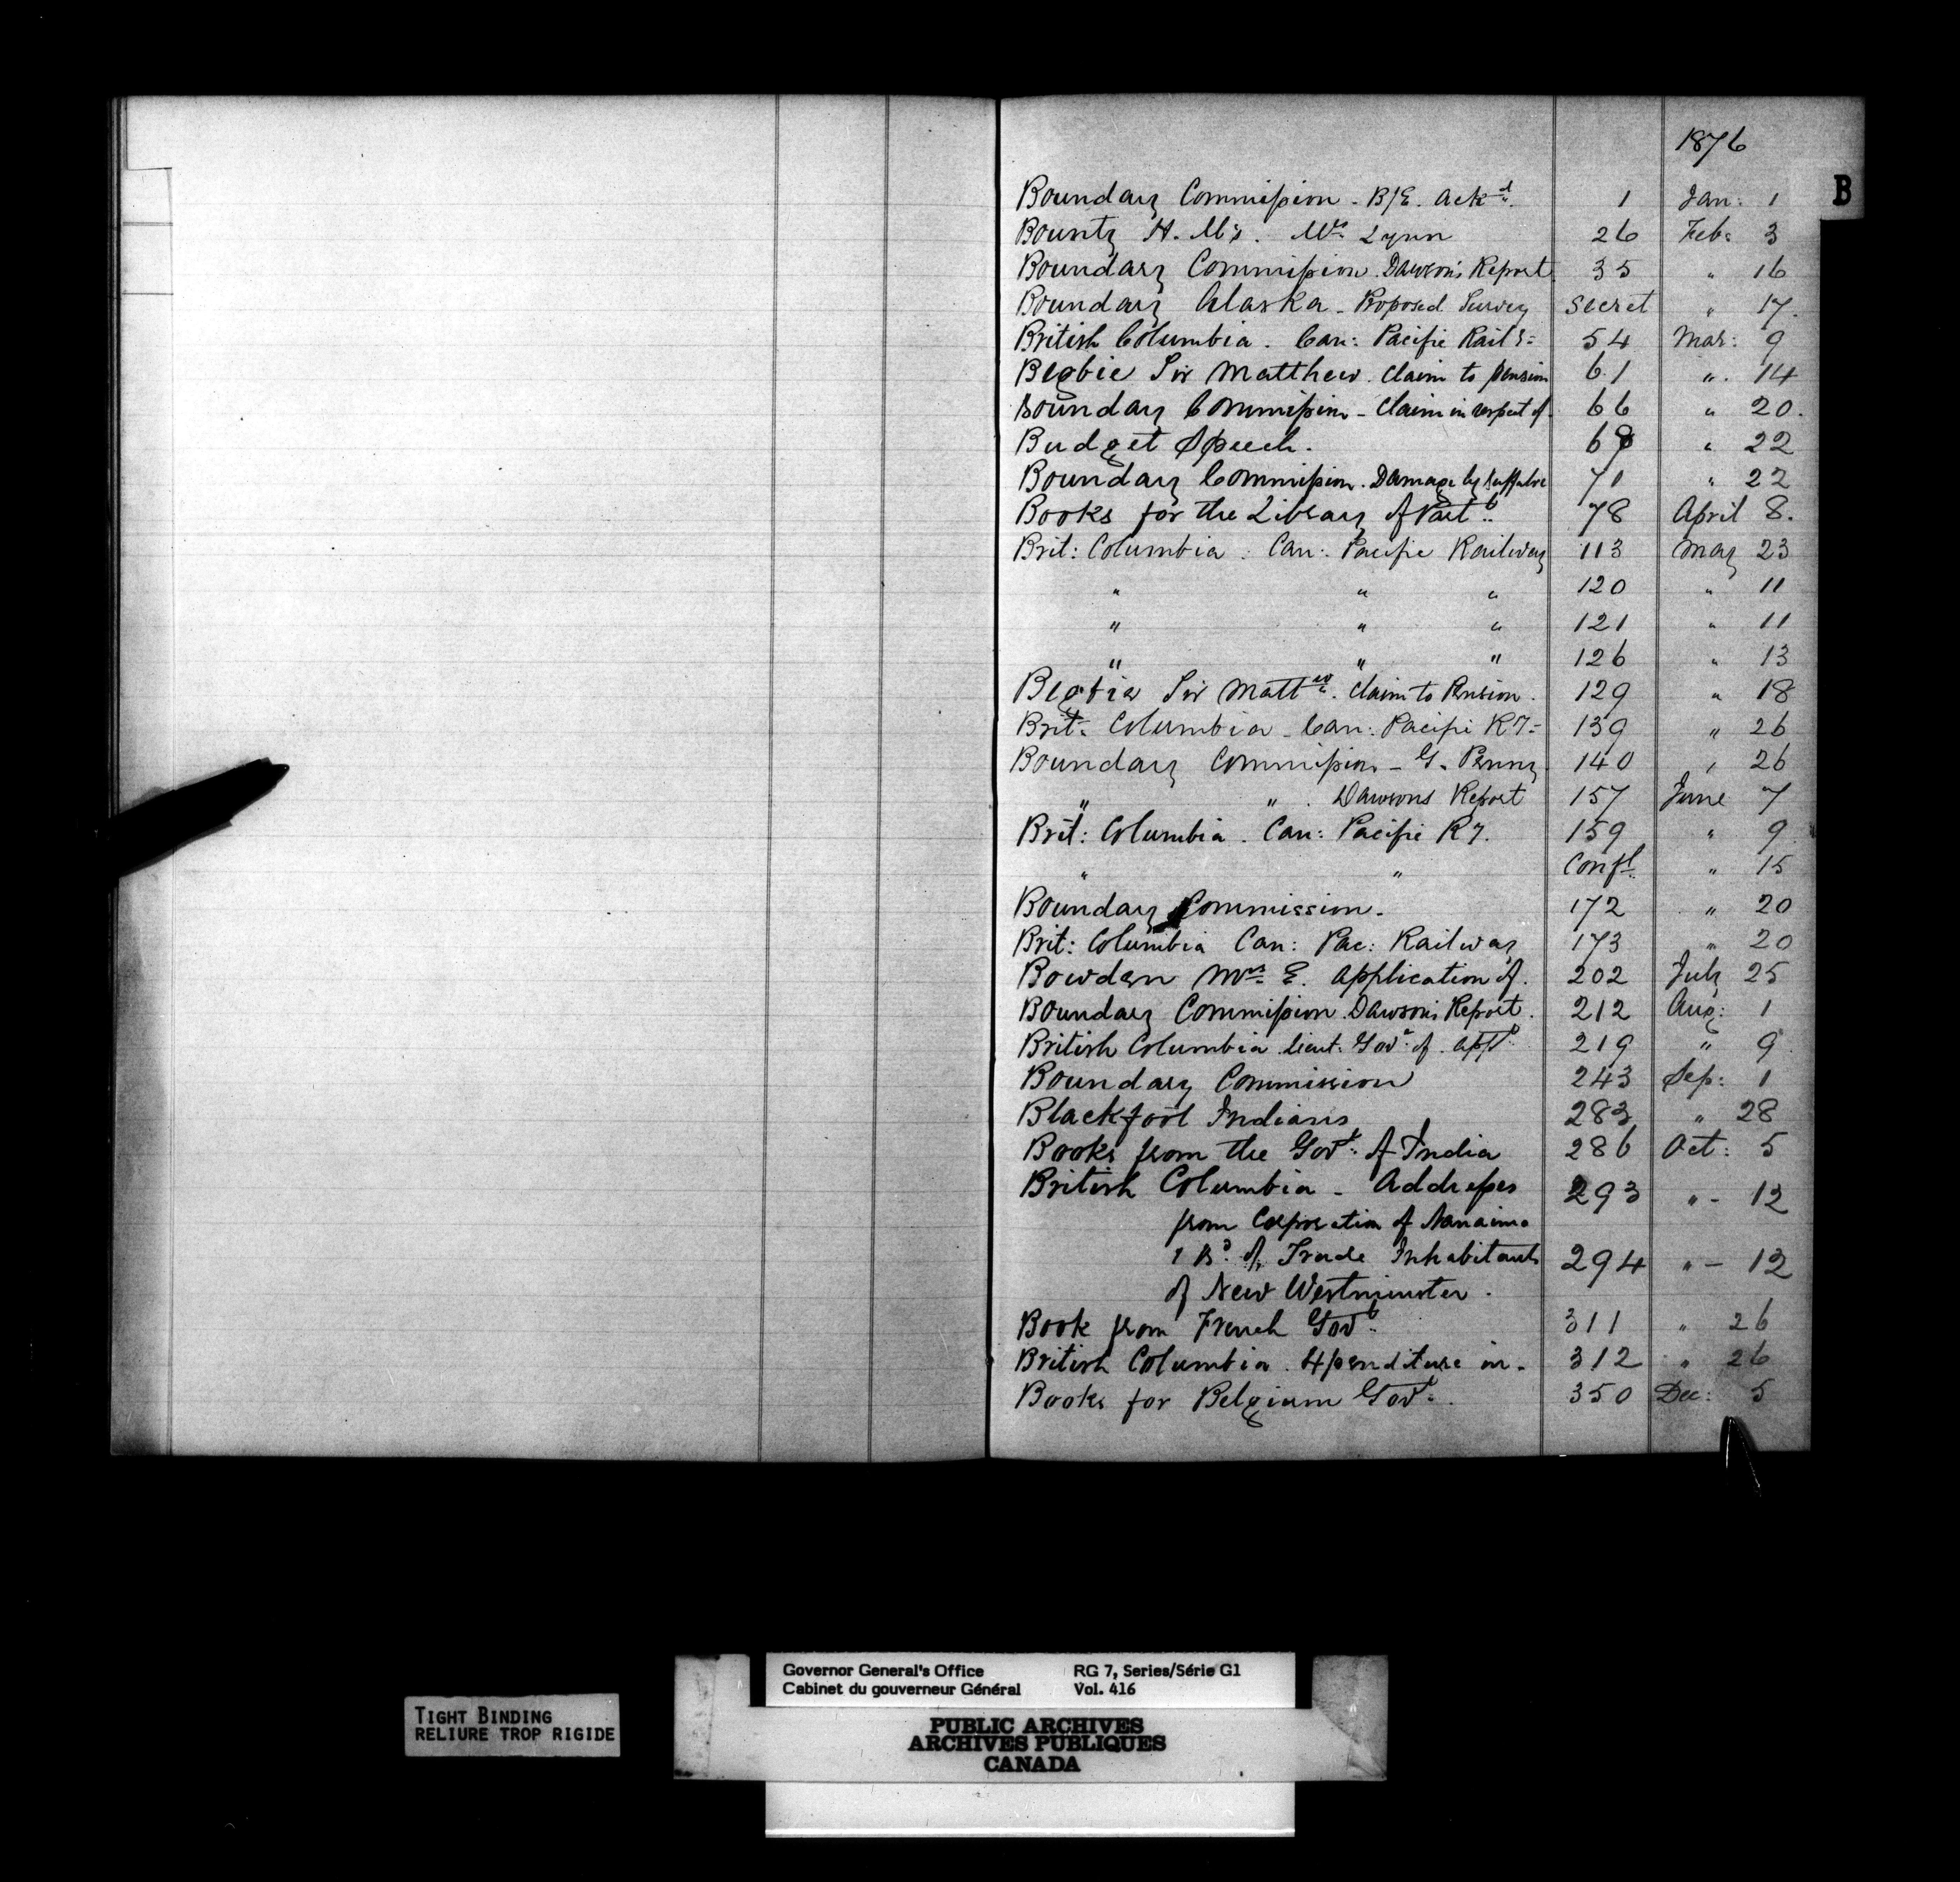 1876
B
Boundary Commission - B/E. Ackd. 1 Jan: 1
Bounty H. M's. Mrs Lynn 26 Feb: 3
Boundary Commission. Dawson's Report 35 " 16
Boundary Alaska - Proposed Survey Secret " 17.
British Columbia. Can: Pacific Raily= 54 Mar: 9
Begbie Sir Matthew. Claim to pension 61 " 14
Boundary Commission - Claim in respect of 66 " 20.
Budget Speech. " 22
Boundary Commission. Damage by 71 " 22
Books for the Library of Parlt. 78 April 8.
Brit: Columbia. Can: Pacific Railway 113 May 23
" " " 120 " 11
" " " 121 " 11
" " " 126 " 13
Begbie Sir Mattew. Claim to Pension. 129 " 18
Brit: Columbia - Can: Pacific Ry= 139 " 26
Boundary Commission - G. Penny. 140 " 26
" ". Dawsons Report 157 June 7
Brit: Columbia. Can: Pacific Ry. 159 " 9
" " Confl. " 15
Boundary Commission. 172 " 20
Brit: Columbia Can: Pac: Railway 173 " 20
Bowden Mrs E. Application of. 202 July 25
Boundary Commission. Dawson's Report. 212 Aug: 1
British Columbia. Lieut: Govr. of. appt. 219 " 9
Boundary Commission 243 Sep: 1
Blackfoot Indians 283 " 28
Books from the Govt. of India 286 Oct: 5
British Columbia - Addresses 293 " - 12
from Corporation of Nanaimo
& Bd. of Trade Inhabitants 294 " - 12
of New Westminster.
Book from French Govt. 311 " 26
British Columbia. Expenditure in. 312 " 26
Books for Belgium Govt. 350 Dec: 5
TIGHT BINDING
RELIURE TROP RIGIDE
Governor General's Office RG 7, Series/Série G1
Cabinet du gouverneur Général Vol. 416
PUBLIC ARCHIVES
ARCHIVES PUBLIQUES
CANADA